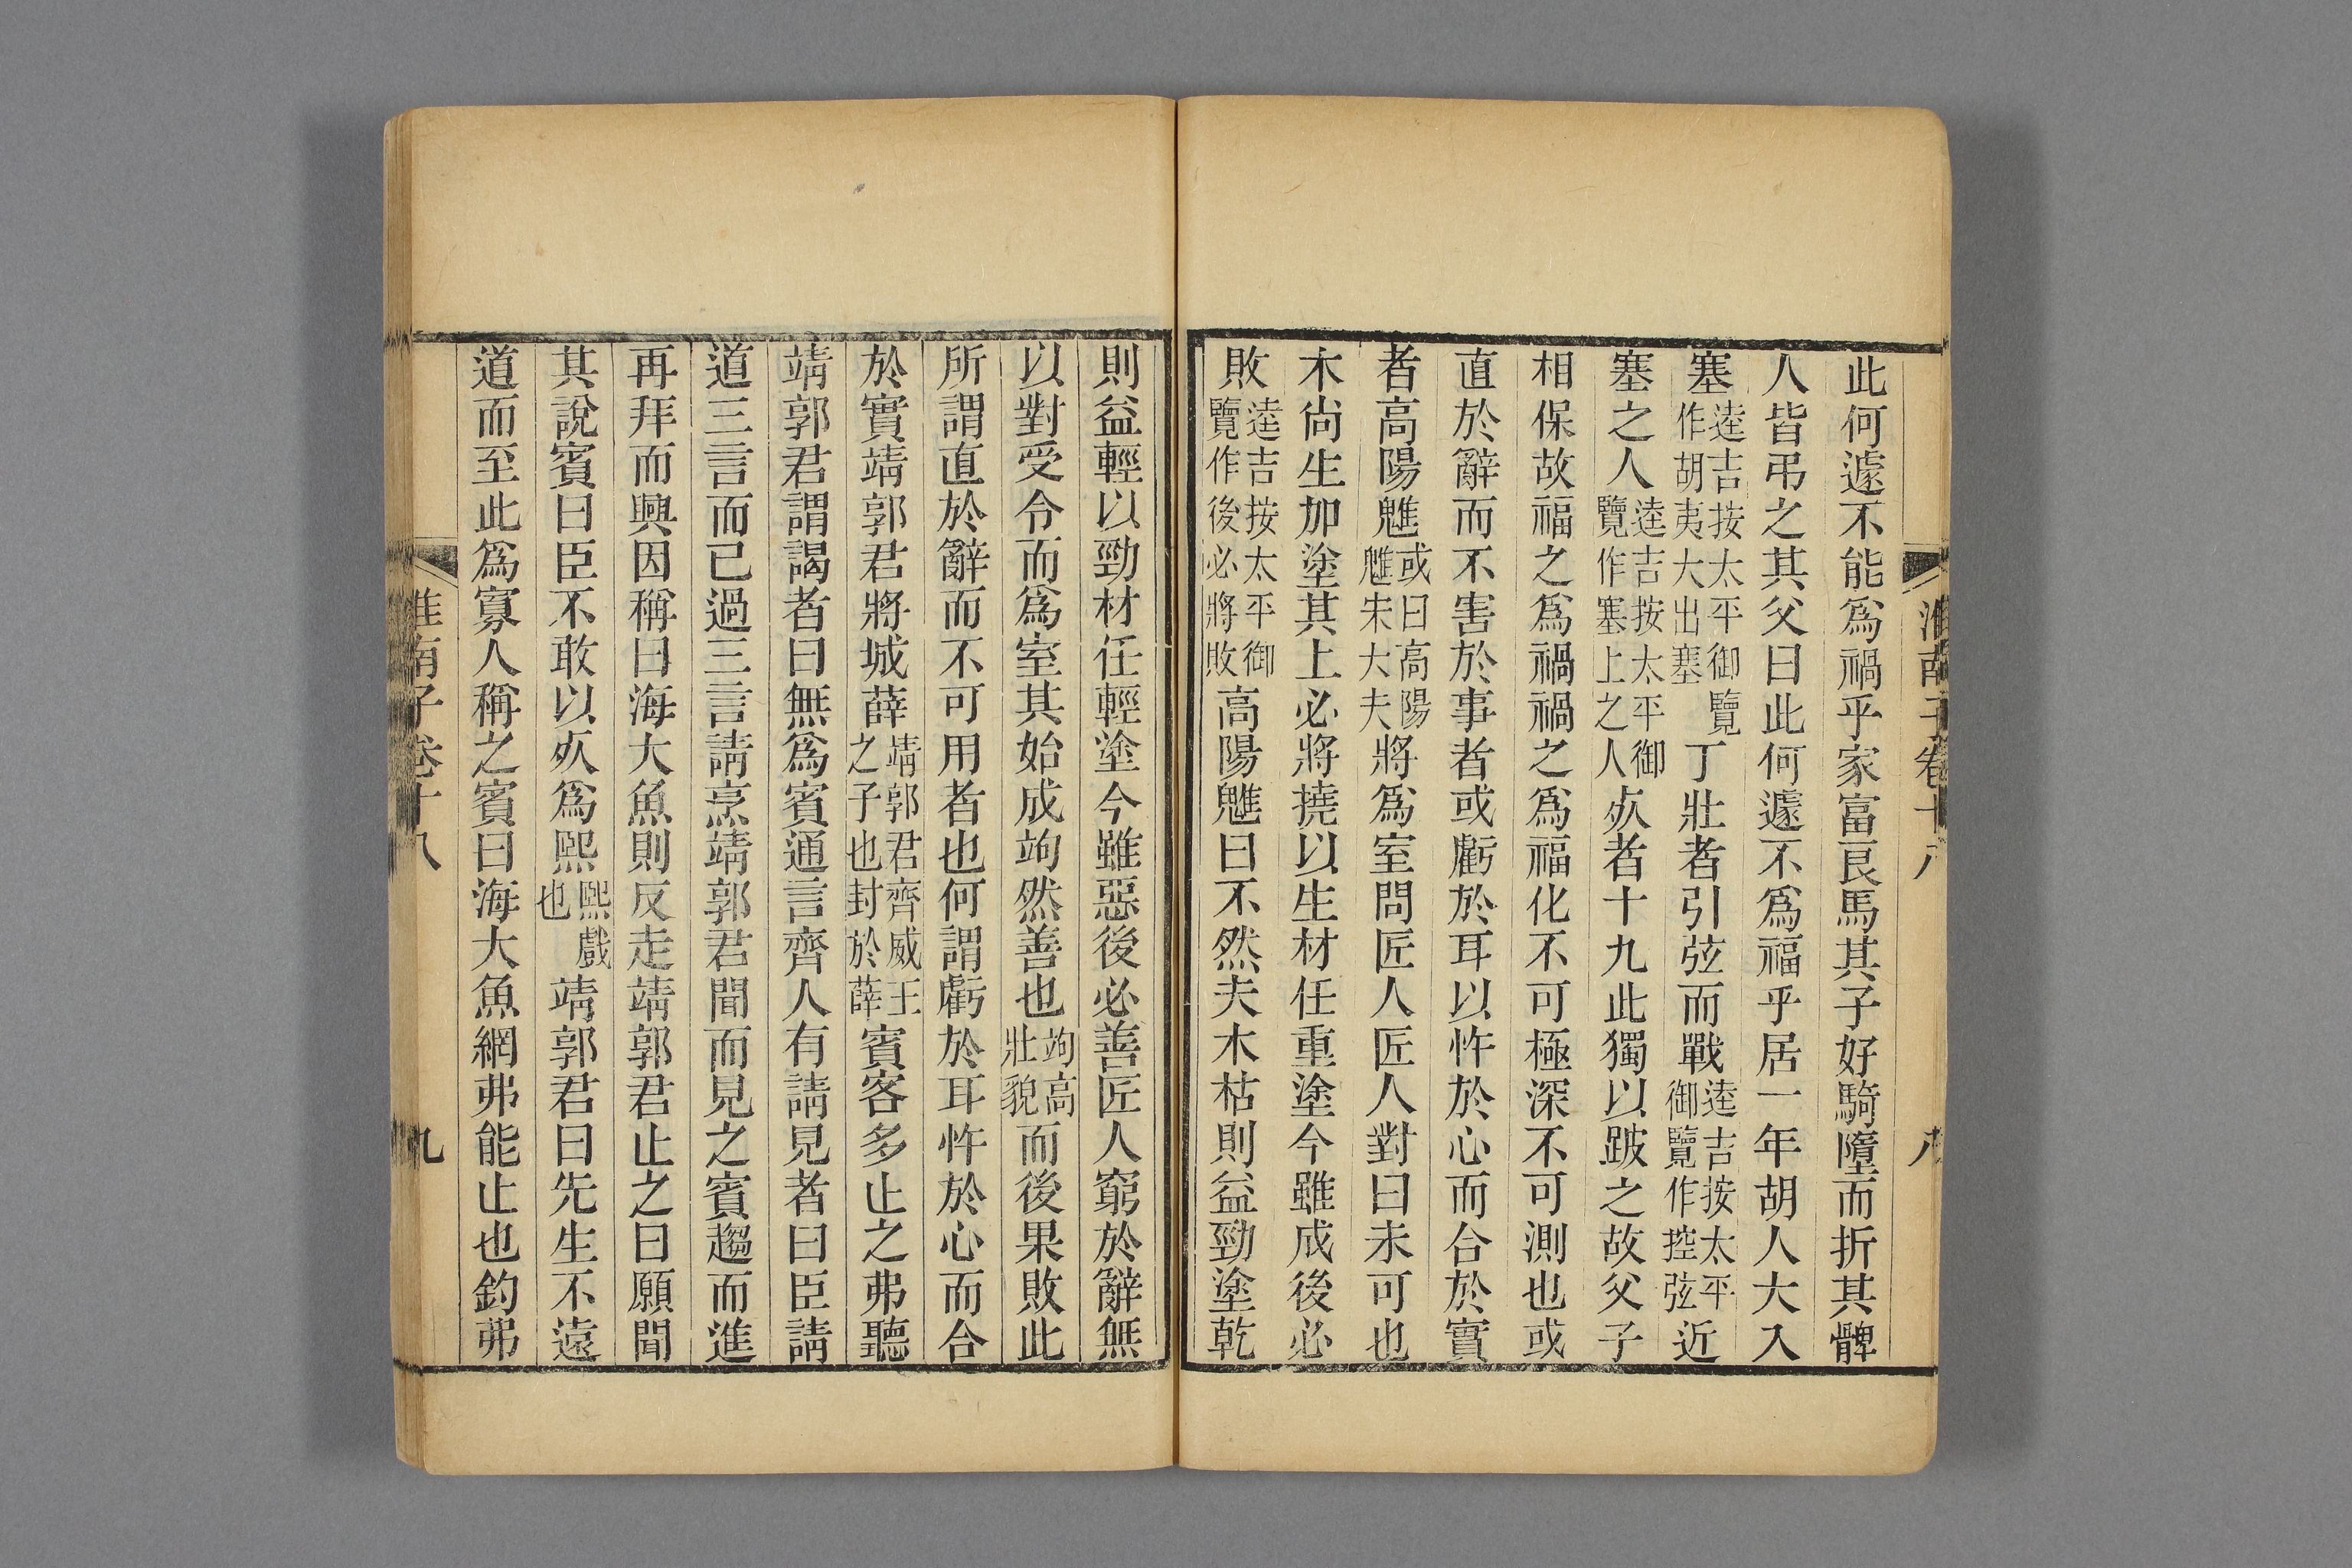 淮南子卷十八 八
此何遽不能爲禍乎家富良馬其子好騎墮而折其髀
人皆弔之其父曰此何遽不爲福乎居一年胡人大入
塞逵吉按太平御覽作胡夷大出塞丁壯者引弦而戰逵吉按太平御覽作控弦近
塞之人逵吉按太平御覽作塞上之人㱙者十九此獨以跛之故父子
相保故福之爲禍禍之爲福化不可極深不可測也或
直於辭而不害於事者或虧於耳以忤於心而合於實
者高陽魋或曰高陽魋宋大夫將爲室問匠人匠人對曰未可也
木尚生加塗其上必將撓以生材任重塗今雖成後必
敗逵吉按太平御覽作後必將敗高陽魋曰不然夫木枯則益勁塗乾
則益輕以勁材任輕塗今雖惡後必善匠人窮於辭無
以對受令而爲室其始成竘然善也竘高壯貌而後果敗此
所謂直於辭而不可用者也何謂虧於耳忤於心而合
於實靖郭君將城薛靖郭君齊威王之子也封於薛賓客多止之弗聽
靖郭君謂謁者曰無爲賓通言齊人有請見者曰臣請
道三言而已過三言請烹靖郭君聞而見之賓趨而進
再拜而興因稱曰海大魚則反走靖郭君止之曰願聞
其說賓曰臣不敢以㱙爲熙熙戲也靖郭君曰先生不遠
道而至此爲寡人稱之賓曰海大魚網弗能止也釣弗
淮南子卷十八 九